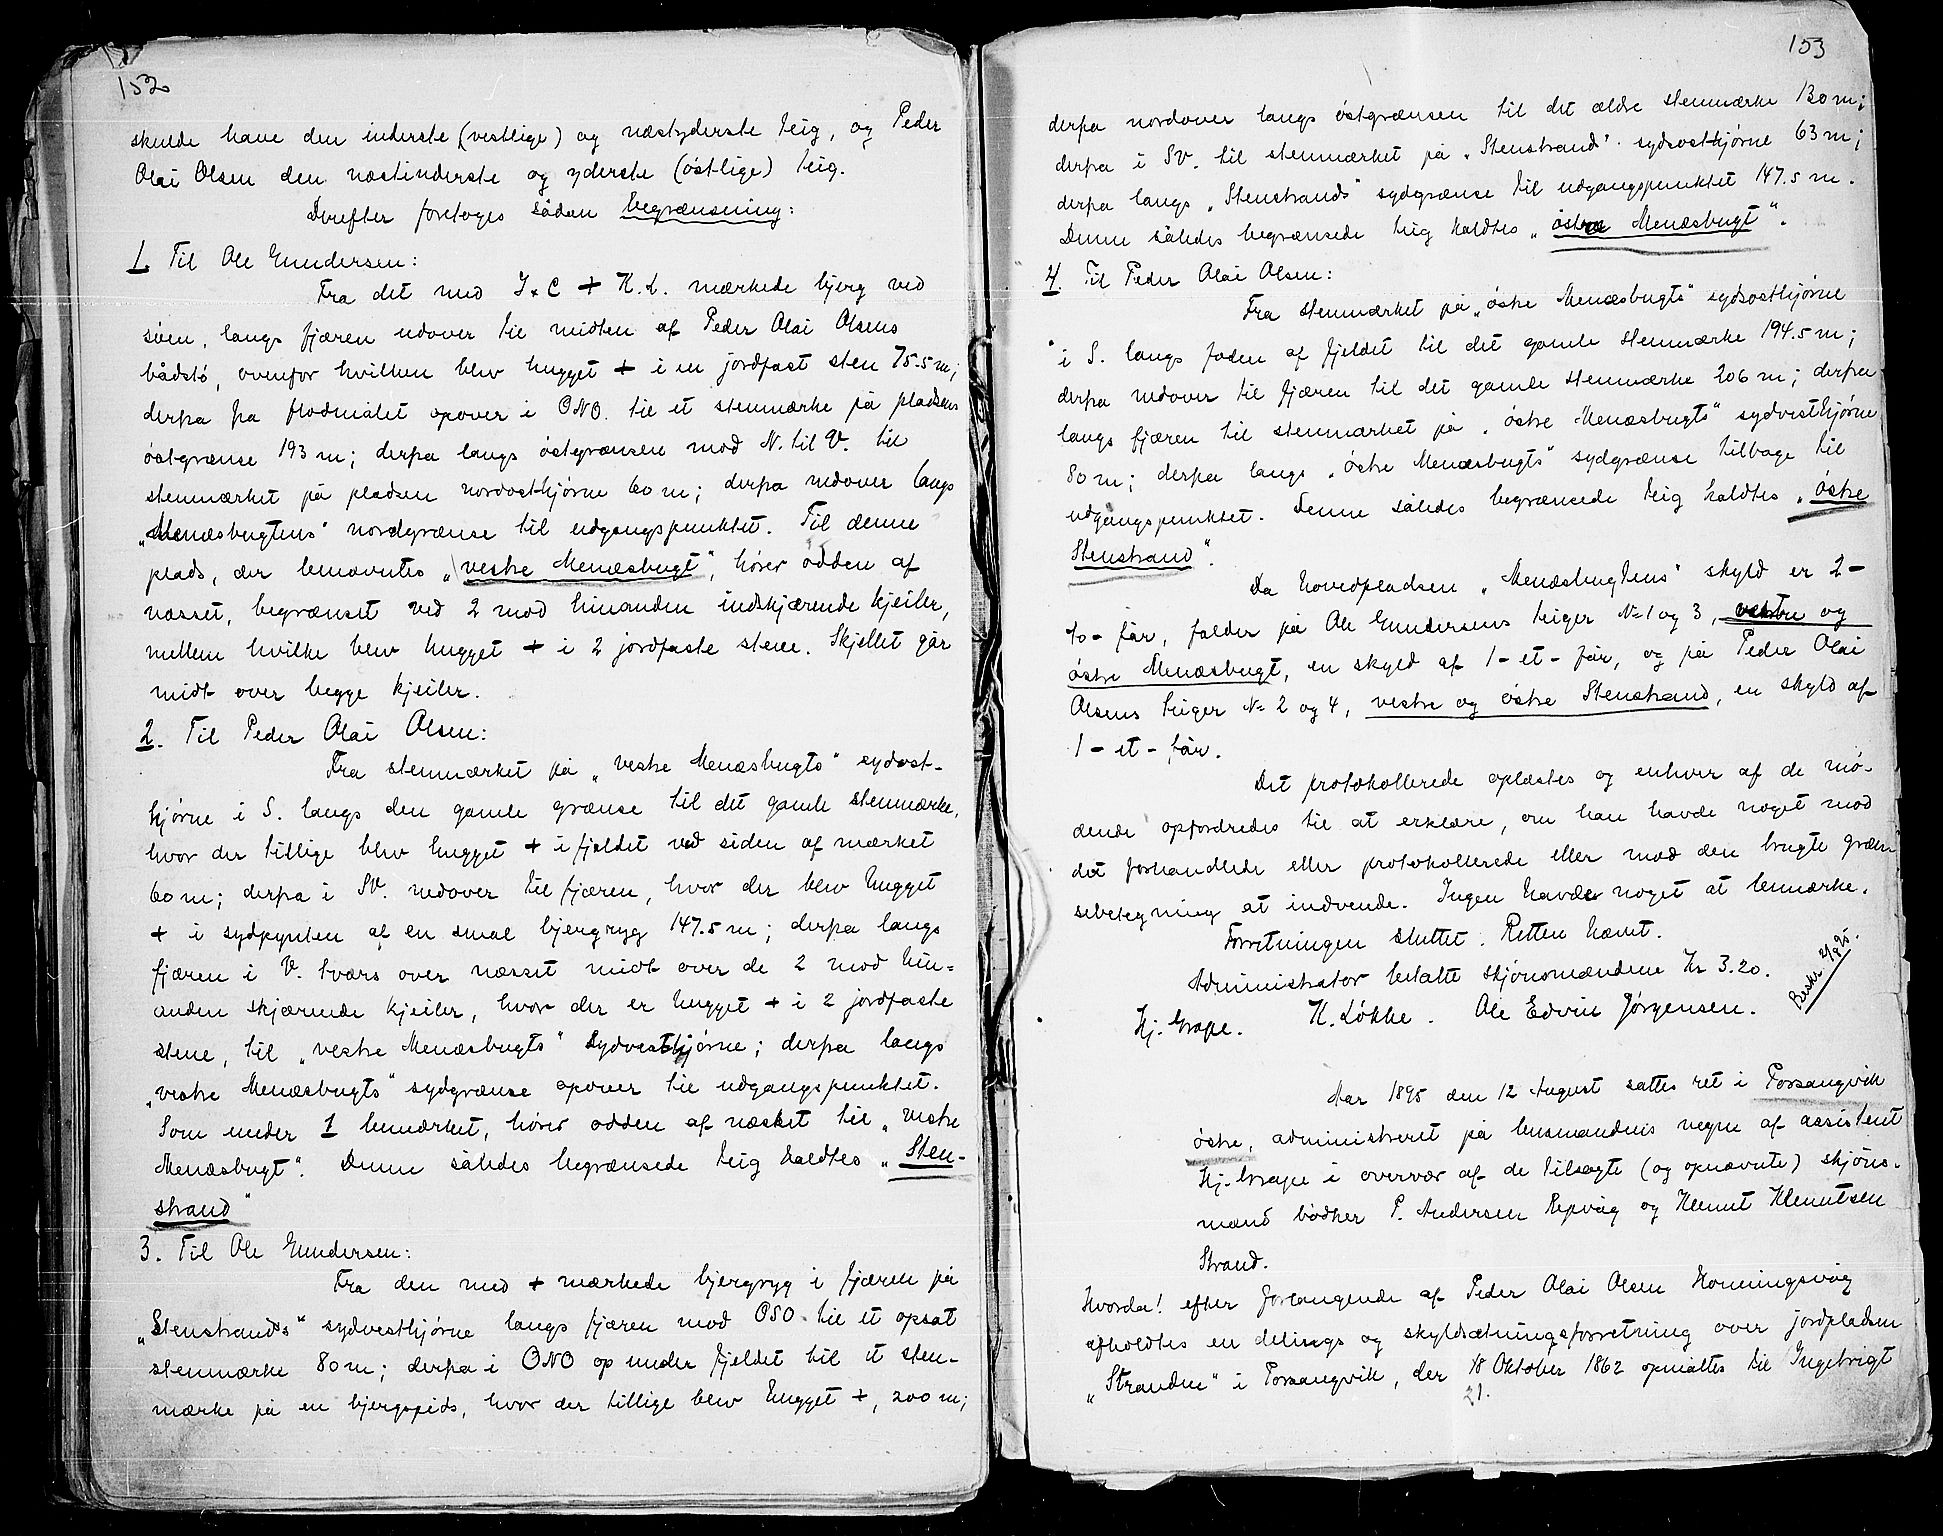 152
skulde have den inderste (vestlige) og næstyderste teig, og Peder
Olai Olsen den næstinderste og yderste (østlige) teig.
Derefter foretoges sådan begrænsning:
1. Til Ole Gundersen:
Fra det med J × C + K. L. mærkede bjerg ved
søen, langs fjæren udover til midten af Peder Olai Olsens
bådstø, ovenfor hvilken blev hugget + i en jordfast sten 75.5 m;
derfra fra flodmålet opover i ONO. til et stenmærke på pladsens
østgrænse 193 m; derfra langs østgrænsen mod N. til V. til
stenmærket på pladsen nordosthjørne 60 m; derfra nedover langs
„Menæsbugtens" nordgrænse til udgangspunktet. Til denne
plads, der benævntes „vestre Menæsbugt", hører odden af
næsset, begrænset ved 2 mod hinanden indskjærende kjeiler,
mellem hvilke blev hugget + i 2 jordfaste stene. Skjellet går
midt over begge kjeiler.
2. Til Peder Olai Olsen:
Fra stenmærket på „vestre Menæsbugts" sydost-
hjørne i S. langs den gamle grænse til det gamle stenmærke,
hvor der tillige blev hugget + i fjeldet ved siden af mærket
60 m; derfra i SV. nedover til fjæren, hvor der blev hugget
+ i sydpynten af en smal bjergryg 147.5 m; derfra langs
fjæren i V. tværs over næsset midt over de 2 mod hin-
anden skjærende kjeiler, hvor der er hugget + i 2 jordfaste
stene, til „vestre Menæsbugts" sydvesthjørne; derfra langs
„vestre Menæsbugts" sydgrænse opover til udgangspunktet.
Som under 1 bemærket, hører odden af næsset til „vestre
Menæsbugt". Denne således begrænsede teig kaldtes „Sten-
strand"
3. Til Ole Gundersen:
Fra den med + mærkede bjergryg i fjæren på
„Stenstrands" sydvesthjørne langs fjæren mod OSO. til et opsat
stenmærke 80 m; derfra i ONO op under fjeldet til et sten-
mærke på en bjergspids, hvor der tillige blev hugget +, 200 m;
153
derfra nordover langs østgrænsen til det ældre stenmærke 130 m;
derfra i SV. til stenmærket på „Stenstrand" sydosthjørne 63 m;
derfra langs „Stenstrands" sydgrænse til udgangspunktet 147.5 m.
Denne således begrænsede teig kaldtes „østre Menæsbugt".
4. Til Peder Olai Olsen:
Fra stenmærket på „østre Menæsbugts" sydosthjørne
i S. langs foden af fjeldet til det gamle stenmærke 194.5 m;
derfra nedover til fjæren til det gamle stenmærke 206 m; derfra
langs fjæren til stenmærket på „østre Menæsbugts" sydvesthjørne
80 m; derfra langs „østre Menæsbugts" sydgrænse tilbage til
udgangspunktet. Denne således begrænsede teig kaldtes „østre
Stenstrand".
Da hovedpladsen „Menæsbugtens" skyld er 2 -
to - får, falder på Ole Gundersens teiger № 1 og 3, vestre og
østre Menæsbugt, en skyld af 1 - et - får, og på Peder Olai
Olsens teiger № 2 og 4, vestre og østre Stenstrand, en skyld af
1 - et - får.
Det protokollerede oplæstes og enhver af de mø-
dende opfordredes til at erklære, om han havde noget mod
det forhandlede eller protokollerede eller mod den brugte græn-
sebetegning at indvende. Ingen havde noget at bemærke.
Forretningen sluttet. Retten hævet.
Administrator betalte skjønsmændene Kr 3.20.
Hj. Grape. K. Løkke. Ole Edvin Jørgensen.
Beskr 2/9 95.
Aar 1895 den 12 August sattes ret i Porsangvik
østre, administreret på lensmandens vegne af assistent
Hj. Grape i overvær af de tilsagte (og opnævnte) skjøns-
mænd bødker P. Andersen Repvåg og Klemet Klemetsen
Strand.
Hvorda! efter forlangende af Peder Olai Olsen Honningsvåg
afholdtes en delings og skyldsætningsforretning over jordpladsen
„Stranden" i Porsangvik, der 18 Oktober 1862 opmåltes til Ingebrigt
21.